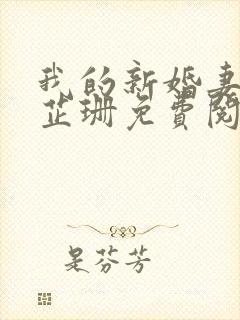 我的新婚妻
芷珊免费阅
是芬芳